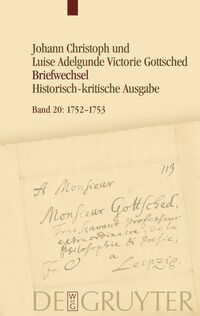 Johann Christoph und
Luise Adelgunde Victorie Gottsched
Briefwechsel
Historisch-kritische Ausgabe
Band 20: 1752–1753
113
A Monsieur
Monsieur Gottsched,
Tres savant professeur
extraordinaire, de la
Philosophie & Poesie,
Leipzig.
DE GRUYTER